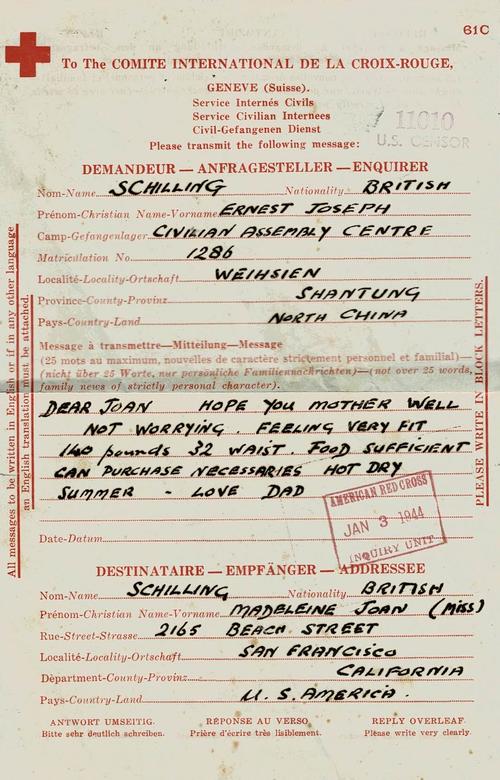 61C
To The COMITE INTERNATIONAL DE LA CROIX-ROUGE,
GENEVE (Suisse).
Service Internés Civils
Service Civilian Internees
Civil-Gefangenen Dienst
11010
U.S. CENSOR
Please transmit the following message:
DEMANDEUR — ANFRAGESTELLER — ENQUIRER
Nom-Name SCHILLING Nationality BRITISH
Prénom-Christian Name-Vorname ERNEST JOSEPH
Camp-Gefangenlager CIVILIAN ASSEMBLY CENTRE
Matriculation No. 1286
Localité-Locality-Ortschaft WEIHSIEN
Province-County-Provinz SHANTUNG
Pays-Country-Land NORTH CHINA
Message à transmettre—Mitteilung—Message
(25 mots au maximum, nouvelles de caractère strictement personnel et familial)—
(nicht über 25 Worte, nur persönliche Familiennachrichten)—(not over 25 words,
family news of strictly personal character).
DEAR JOAN HOPE YOU MOTHER WELL
NOT WORRYING. FEELING VERY FIT
140 pounds 32 WAIST. FOOD SUFFICIENT
CAN PURCHASE NECESSARIES HOT DRY
SUMMER - LOVE DAD
AMERICAN RED CROSS
JAN 3 1944
INQUIRY UNIT
Date-Datum
All messages to be written in English or if in any other language
an English translation must be attached.
PLEASE WRITE IN BLOCK LETTERS.
DESTINATAIRE — EMPFÄNGER — ADDRESSEE
Nom-Name SCHILLING Nationality BRITISH
Prénom-Christian Name-Vorname MADELEINE JOAN (MISS)
Rue-Street-Strasse 2165 BEACH STREET
Localité-Locality-Ortschaft SAN FRANCISCO
Départment-County-Provinz CALIFORNIA
Pays-Country-Land U. S. AMERICA.
ANTWORT UMSEITIG. RÉPONSE AU VERSO REPLY OVERLEAF.
Bitte sehr deutlich schreiben. Prière d'écrire très lisiblement. Please write very clearly.